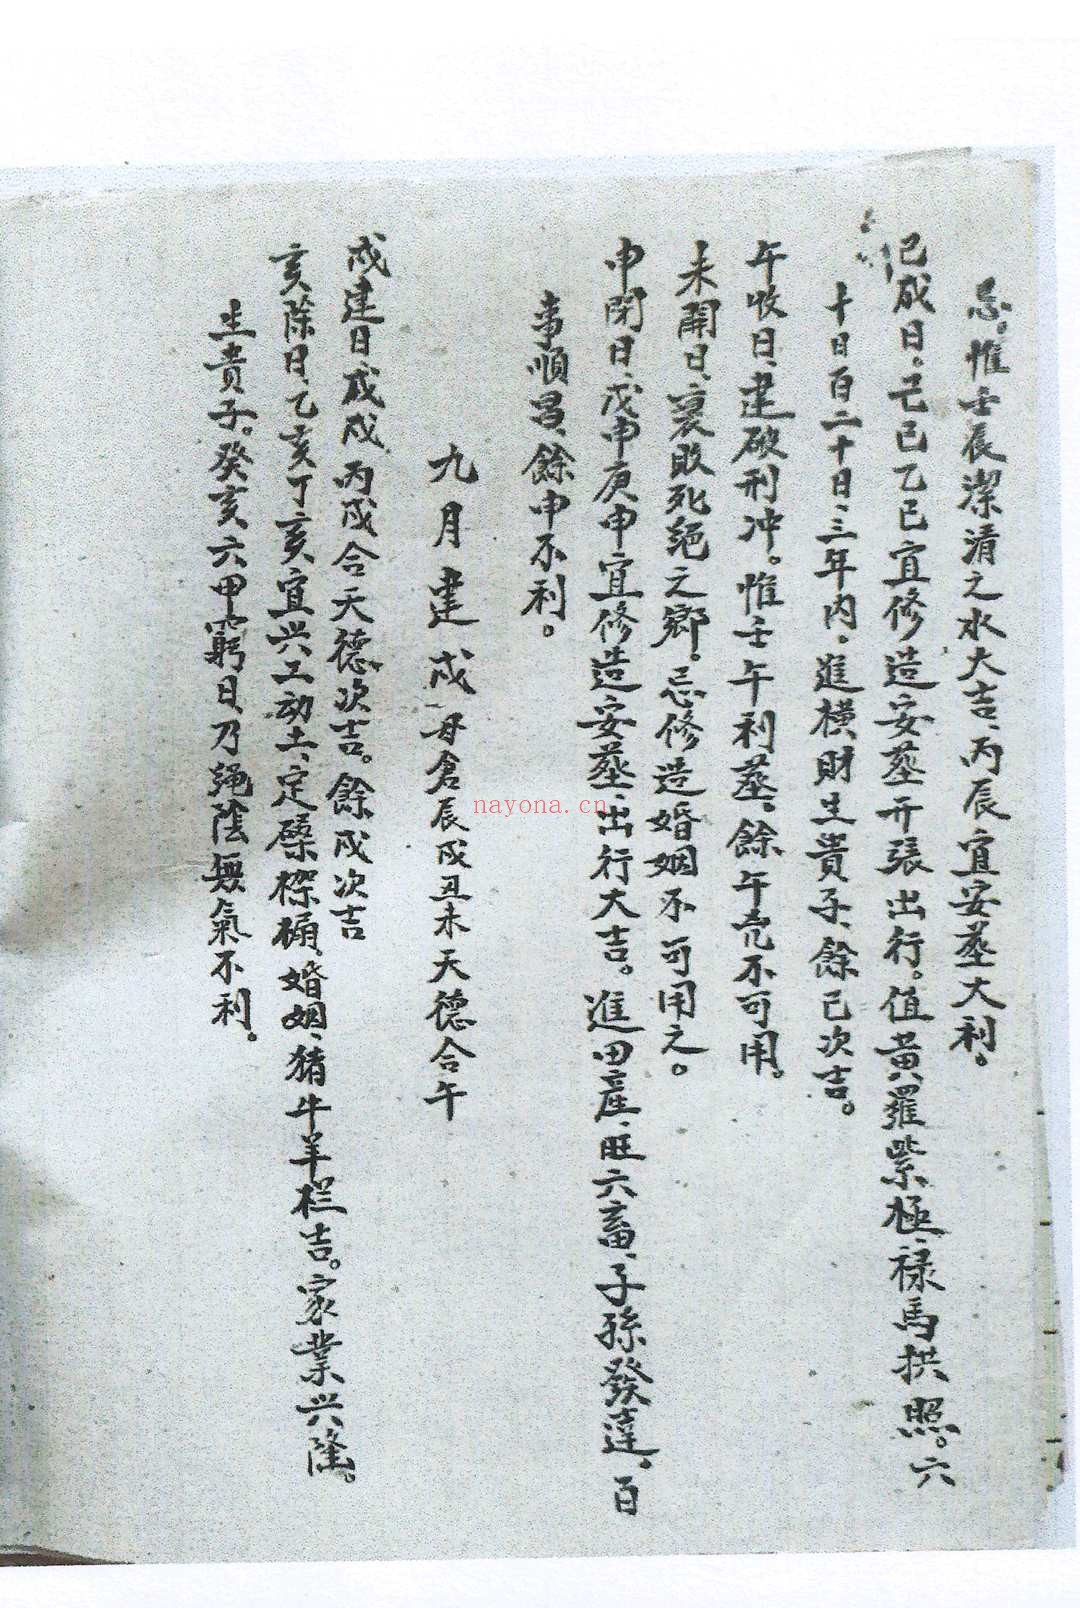 忌。惟壬辰潔清之水大吉、丙辰宜安葬大利。
巳成日。己巳乙巳宜修造安葬开張出行。值黄羅紫極、禄馬拱照。六
十日百二十日、三年内。進橫財生貴子、餘巳次吉。
午收日、建破刑冲。惟壬午利葬。餘午不可用。
未開日、衰敗死絕之鄉。忌修造婚姻不可用之。
申閉日、戊申庚申宜修造安葬、出行大吉。進田產、旺六畜、子孫發達。百
事順昌、餘申不利。
九月建戌 母倉辰戌丑未天德合午
戌建日、戌、丙戌合天德次吉。餘戌次吉
亥除日、乙亥丁亥宜兴工动土、定磉榤桷。婚姻、猪牛羊栏吉。家業兴隆。
生貴子。癸亥六甲窮日、乃純陰無氣不利。
nayona.cn